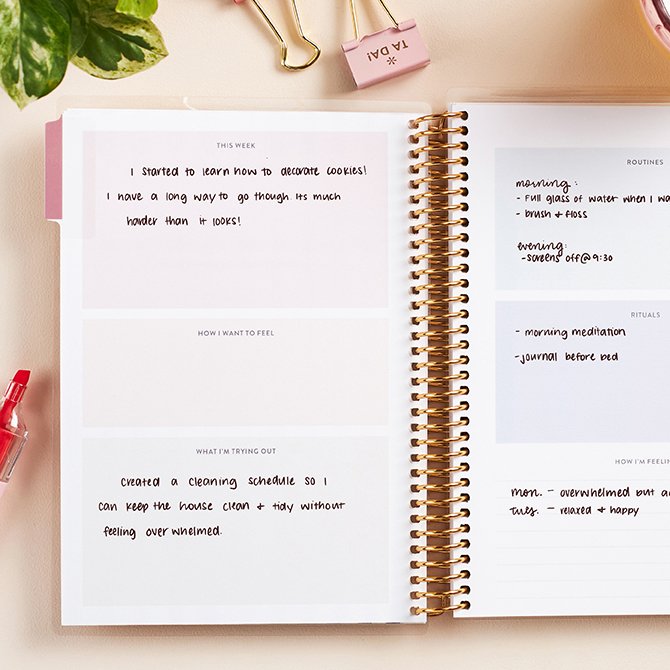 * TA DA!
THIS WEEK
I started to learn how to decorate cookies!
I have a long way to go though. Its much
harder than it looks!
HOW I WANT TO FEEL
WHAT I'M TRYING OUT
Created a cleaning schedule so I
can keep the house clean + tidy without
feeling overwhelmed.
ROUTINES
morning:
- Full glass of water when I
- brush + floss
evening:
- screens off @ 9:30
RITUALS
- morning meditation
- journal before bed
HOW I'M
mon. - overwhelmed but
tues. - relaxed + happy